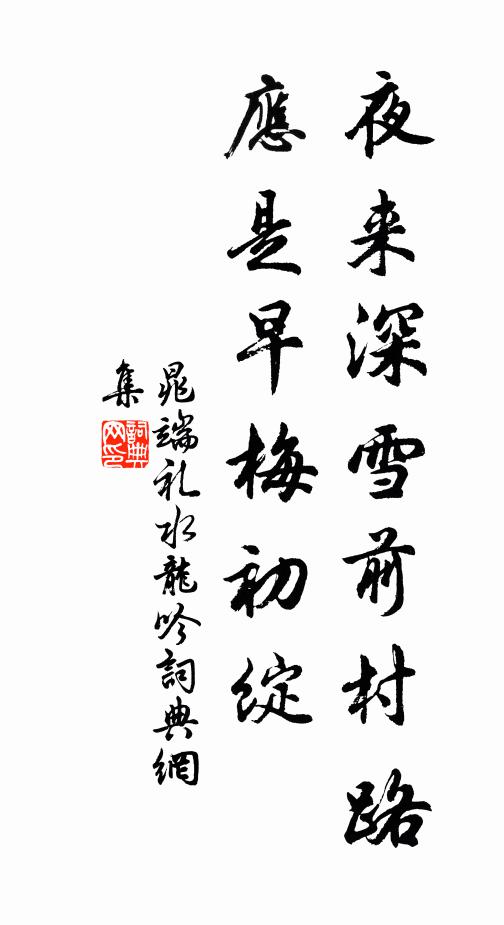 夜来深雪前村路
應是早梅初綻
晁端礼水龍吟詞典網
集
詞典
网印